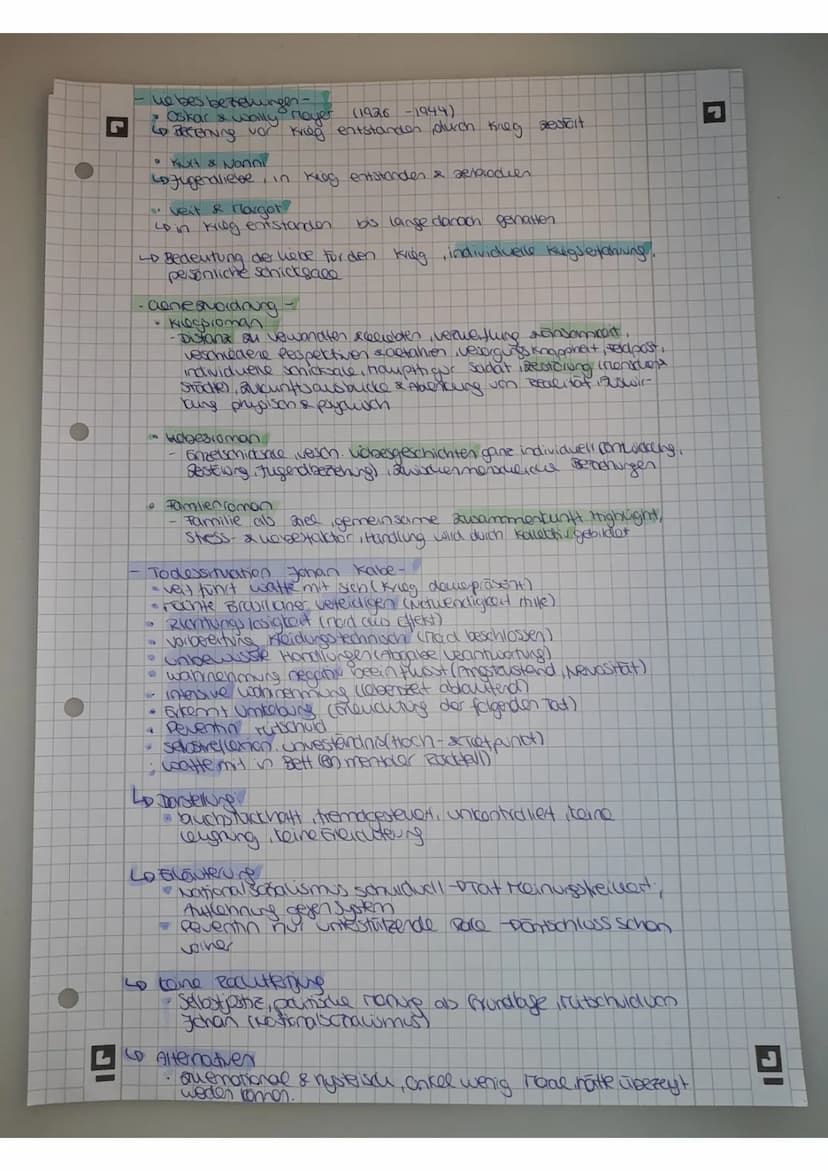 - Liebesbeziehungen -
• Oskar & Wally Meyer (1926 - 1944)
↳ Beziehung vor Krieg entstanden, durch Krieg zerstört
• Kurt & Nanni
↳ Jugendliebe, in Krieg entstanden & zerbrochen
• Veit & Margot
↳ in Krieg entstanden bis lange danach gehalten
↳ Bedeutung der Liebe für den Krieg, individuelle Kriegserfahrung,
persönliche Schicksale
- Genrezuordnung -
• Kriegsroman
- Distanz zu Verwandten & Geliebten, Verzweiflung & Einsamkeit,
verschiedene Perspektiven & Gefahren, Versorgungsknappheit, Feldpost,
individuelle Schicksale, Hauptfigur Soldat, Zerstörung (Menschen &
Städte), Zukunftsausblicke & Ablenkung von Realität, Auswir-
kung physisch & psychisch
• Liebesroman
- Einzelschicksale, versch. Liebesgeschichten ganz individuell (Entwicklung,
Zerstörung, Jugendbeziehung), zwischenmenschliche Beziehungen
• Familienroman
- Familie als Ziel, gemeinsame Zusammenkunft Highlight,
Stress- & Liebesfaktor, Handlung wird durch Kollektiv gebildet
- Todessituation Johann Kolbe -
• Veit führt Waffe mit sich (Krieg dauerpräsent)
• möchte Brasilianer verteidigen (Notwendigkeit Hilfe)
• Richtungslosigkeit (Mord aus Affekt)
• Vorbereitung kleidungstechnisch (Mord beschlossen)
• unbewusste Handlungen (Abgabe Verantwortung)
• Wahrnehmung negativ beeinflusst (Angstzustand, Nervosität)
• intensive Wahrnehmung (Lebenszeit ablaufend)
• Erkennt Umgebung (Beleuchtung der folgenden Tat)
• Pervertin Mitschuld
• Selbstreflexion unverständnis (Hoch- & Tiefpunkt)
• Waffe mit in Bett (ein mentaler Rückfall)
↳ Darstellung
• bruchstückhaft, fremdgesteuert, unkontrolliert, keine
Leugnung, keine Erleichterung
↳ Erläuterung
• Nationalsozialismus schuldvoll → Tat Meinungskeilwert,
Auflehnung gegen System
• Pervertin nur unterstützende Rolle → Entschluss schon
vorher
↳ keine Rechtfertigung
• Selbstjustiz, politische Haltung als Grundlage, Mitschuld durch
Johann (Nationalsozialismus)
↳ Alternativen
• Quernational & hysterisch, Onkel wenig Moral, hätte überzeugt
werden können.